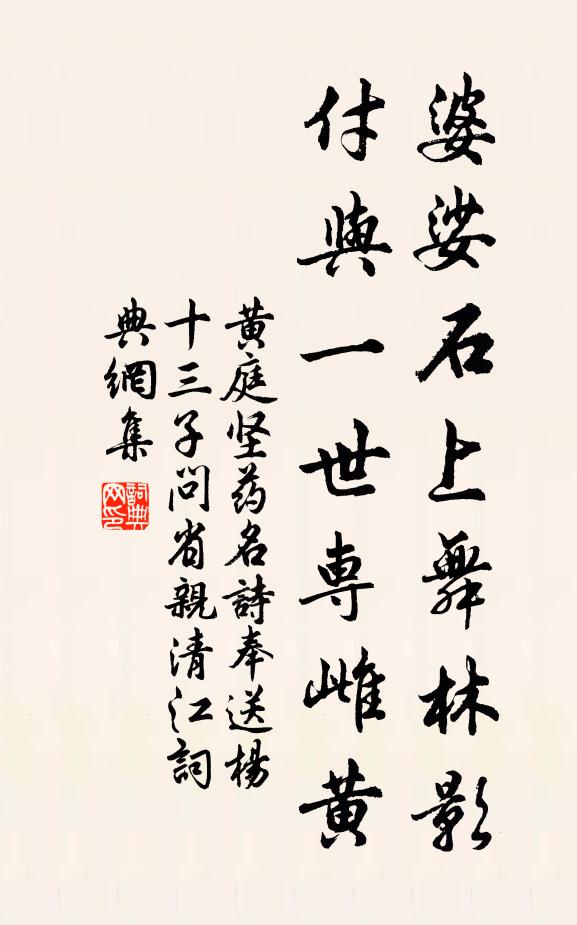 婆娑石上舞林影
付與一世専雌黄
黄庭坚药名詩奉送楊
十三子問省親清江詞
典網集
詞典网印